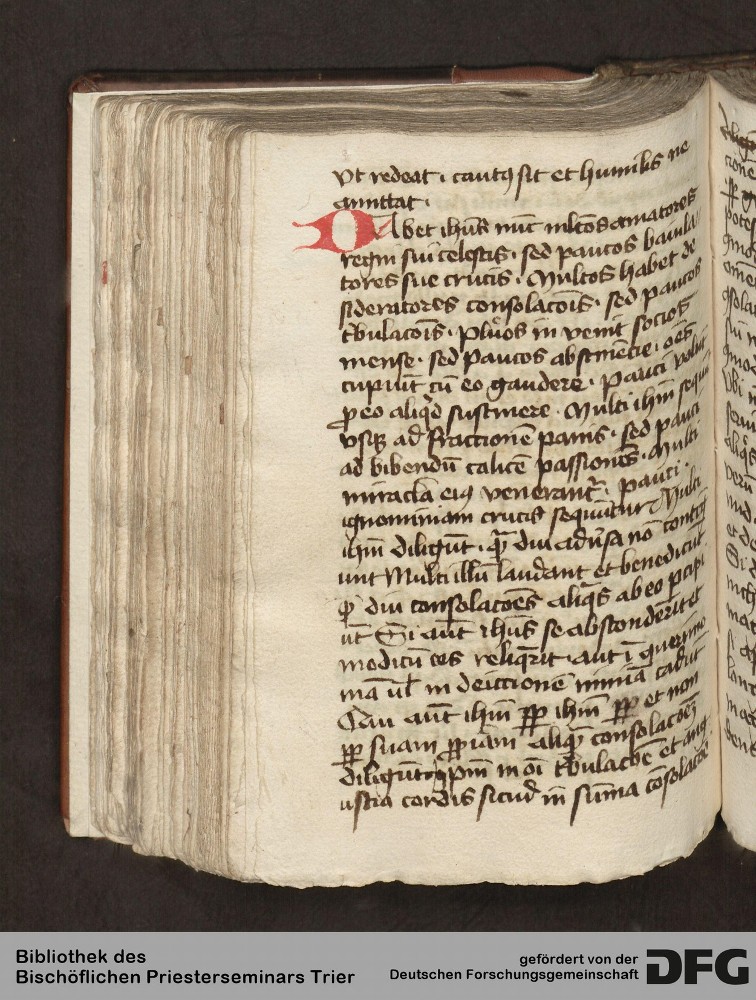 vt redeat . cautꝰ sit et humilis ne
amittat .
Habet ihūs nūc mltos amatores
regni sui celestis . sed paucos baiula
tores sue crucis . Multos habet de
sideratores consolacōis . sed paucos
tͥbulacōis . Plures in venit socios
mense . sed paucos abstinēcie . oēs
cupiūt cū eo gaudere . Pauci volūt
ꝓ eo aliqͥd sustinere . Multi ihm sequū
vsqꝫ ad fractionē panis . sed pauci
ad bibendū calicē passionis . Multi
miracla eiꝰ venerantͬ . pauci
ignominiam crucis sequūtur Multi
ihm diligūt . qͣ diu aduͥsa nō contīgͫ
unt Multi illū laudant et benedicūt
qͣ diu consolacōes aliqͣs ab eo ꝑcipi
ūt Si aūt ihūs se absconderit et
modicū eos reliqͥrit . aut ī querimo
niā ul̄ in deiectionē nimiā cadūt
Qui aūt ihm ꝓpt̄ ihm ꝓpt̄ et non
ꝓpt̄ suam ꝓpiam aliqͣ consolacōeꝫ
diligūt ipm in oī tͥbulacōe et ang
ustia cordis sicud in sūma cōsolacōe
Bibliothek des
Bischöflichen Priesterseminars Trier
gefördert von der
Deutschen Forschungsgemeinschaft
DFG